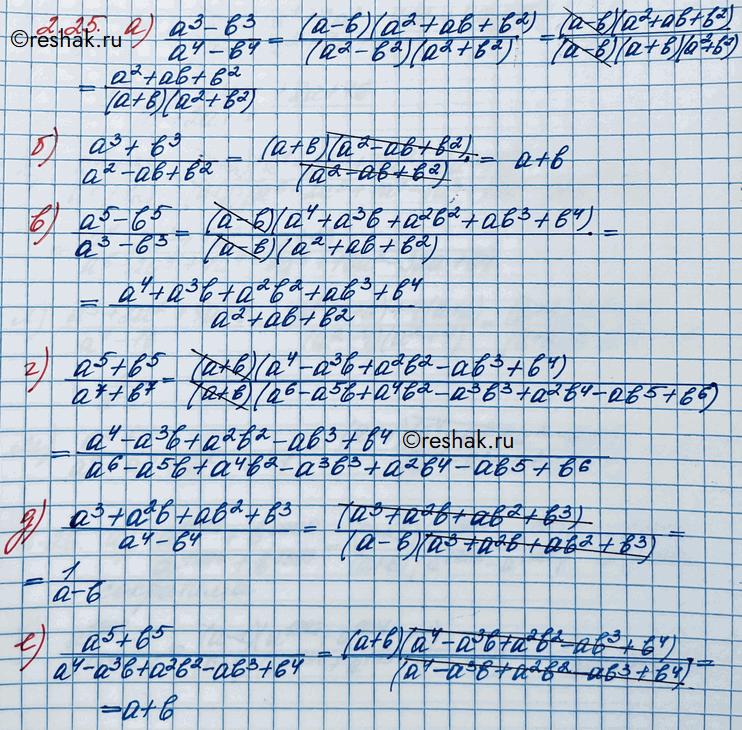 ©reshak.ru
2.25. а) (a³−b³)/(a⁴−b⁴) = ((a−b)(a²+ab+b²))/((a²−b²)(a²+b²)) = ((a−b)(a²+ab+b²))/((a−b)(a+b)(a²+b²))
= (a²+ab+b²)/((a+b)(a²+b²))
б) (a³+b³)/(a²−ab+b²) = ((a+b)(a²−ab+b²))/((a²−ab+b²)) = a+b
в) (a⁵−b⁵)/(a³−b³) = ((a−b)(a⁴+a³b+a²b²+ab³+b⁴))/((a−b)(a²+ab+b²)) =
= (a⁴+a³b+a²b²+ab³+b⁴)/(a²+ab+b²)
г) (a⁵+b⁵)/(a⁷+b⁷) = ((a+b)(a⁴−a³b+a²b²−ab³+b⁴))/((a+b)(a⁶−a⁵b+a⁴b²−a³b³+a²b⁴−ab⁵+b⁶))
= (a⁴−a³b+a²b²−ab³+b⁴)/(a⁶−a⁵b+a⁴b²−a³b³+a²b⁴−ab⁵+b⁶) ©reshak.ru
д) (a³+a²b+ab²+b³)/(a⁴−b⁴) = ((a³+a²b+ab²+b³))/((a−b)(a³+a²b+ab²+b³)) =
= 1/(a−b)
е) (a⁵+b⁵)/(a⁴−a³b+a²b²−ab³+b⁴) = ((a+b)(a⁴−a³b+a²b²−ab³+b⁴))/((a⁴−a³b+a²b²−ab³+b⁴)) =
= a+b